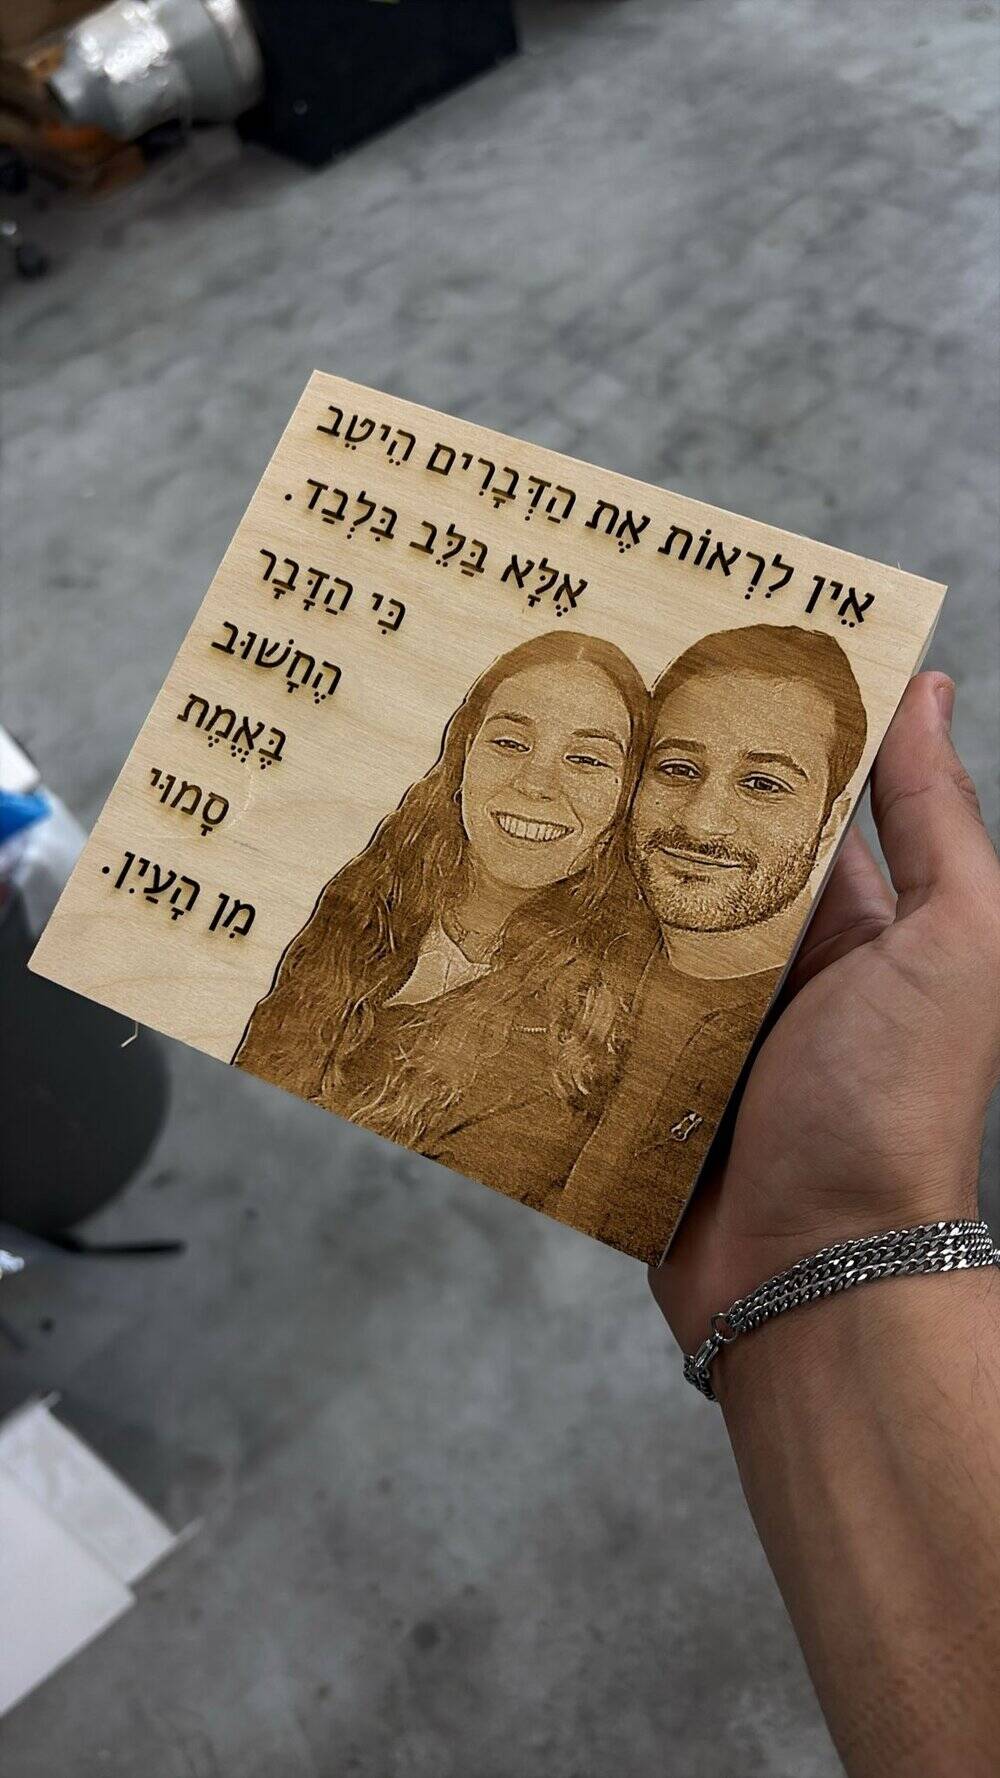 אֵין לִרְאוֹת אֶת הַדְּבָרִים הֵיטֵב
אֶלָּא בַּלֵּב בִּלְבַד.
כִּי הַדָּבָר
הֶחָשׁוּב
בֶּאֱמֶת
סָמוּי
מִן הָעַיִן.